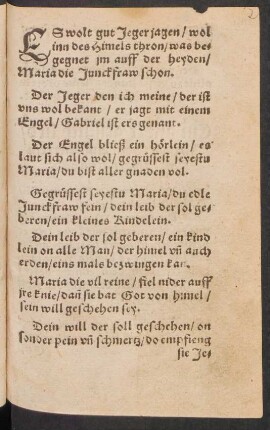 2
ES wolt gut Jeger jagen / wol
inn des Himels thron / was be-
gegnet jm auff der heyden /
Maria die Junckfraw schon.
Der Jeger den ich meine / der ist
vns wol bekant / er jagt mit einem
Engel / Gabriel ist ers genant.
Der Engel bließ ein hörlein / es
laut sich also wol / gegrüssest seyestu
Maria / du bist aller gnaden vol.
Gegrüssest seyestu Maria / du edle
Junckfraw fein / dein leib der sol ge-
beren / ein kleines Kindelein.
Dein leib der sol geberen / ein kind
lein on alle Man / der himel vñ auch
erden / eins mals bezwingen kan.
Maria die vil reine / fiel nider auff
jre knie / dañ sie bat Got von himel /
sein will geschehen sey.
Dein will der soll geschehen / on
sonder pein vñ schmertz / do empfieng
sie Je-